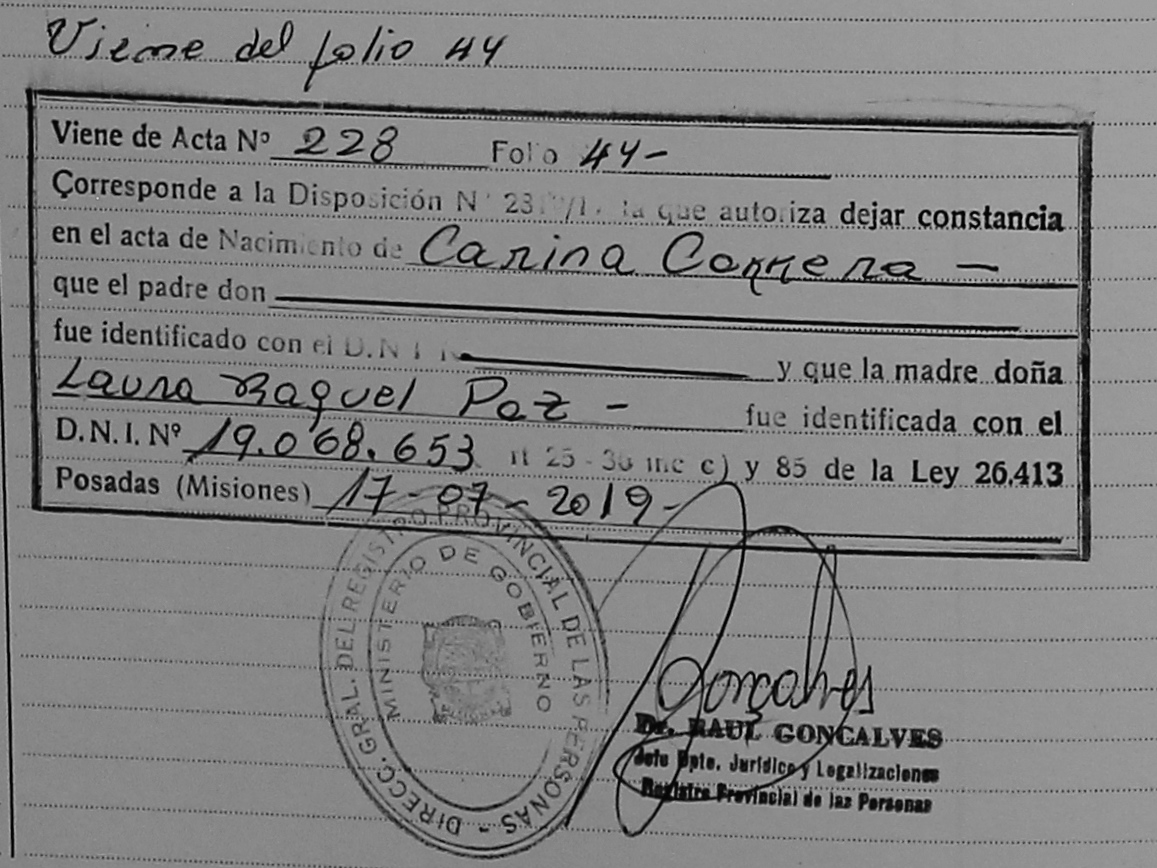 Viene del folio 44
Viene de Acta Nº 228 Folio 44-
Corresponde a la Disposición N° la que autoriza dejar constancia
en el acta de Nacimiento de Carina Correra -
que el padre don
fue identificado con el D.N.I. Nº y que la madre doña
Laura Raquel Paz - fue identificada con el
D.N.I. Nº 19.068.653 rt 25 - 36 inc c) y 85 de la Ley 26.413
Posadas (Misiones) 17-07-2019-
DIRECC. GRAL. DEL REGISTRO PROVINCIAL DE LAS PERSONAS -
MINISTERIO DE GOBIERNO
Gonçalves
Dr. RAUL GONCALVES
Jefe Dpto. Jurídico y Legalizaciones
Registro Provincial de las Personas